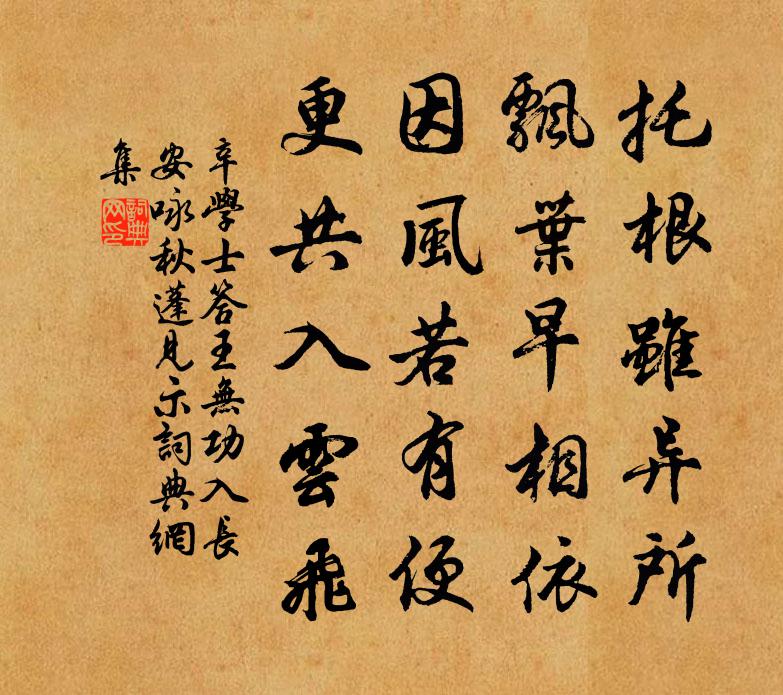 托根雖异所
飄葉早相依
因風若有便
更共入雲飛
辛學士答王無功入長
安咏秋蓬見示詞典網
集
詞典網印